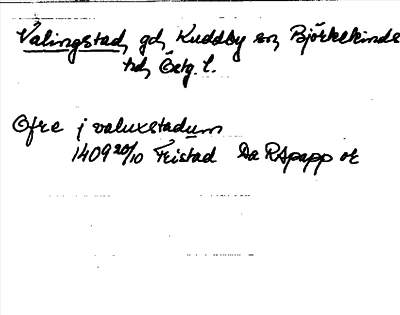 Vålingstad, gd, Kuddby sn, Björkekinds
hd, Östg. l.
Ofre j valuxstadum
1409 20/10 Fristad Da RApapp or